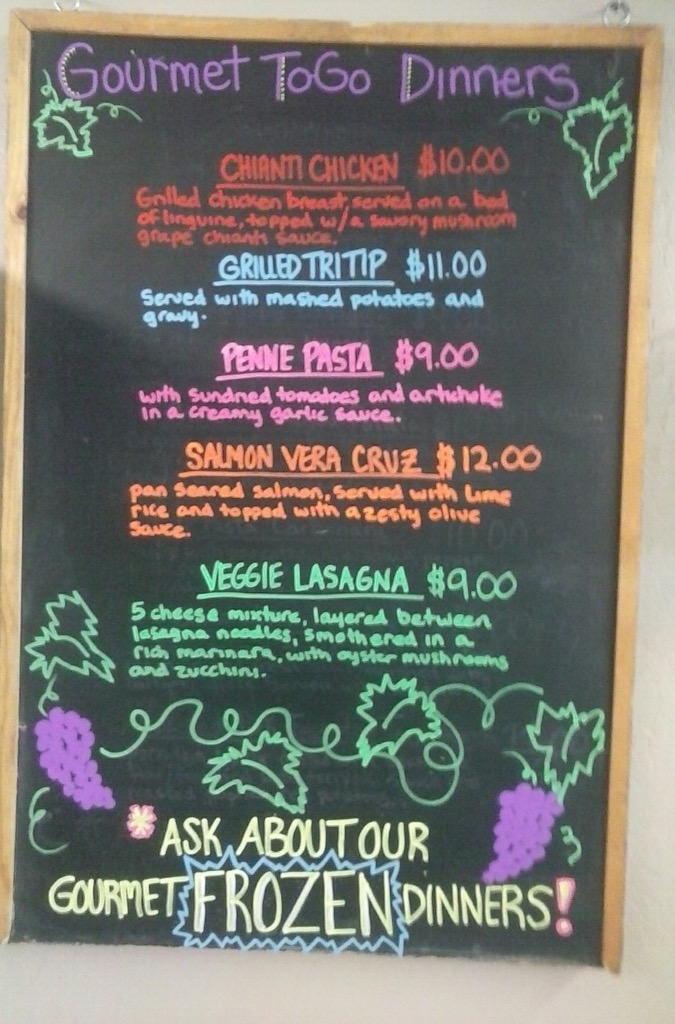 Gourmet ToGo Dinners
CHIANTI CHICKEN $10.00
Grilled chicken breast, served on a bed
of linguine, topped w/a savory mushroom
grape chianti sauce.
GRILLED TRI TIP $11.00
Served with mashed potatoes and
gravy.
PENNE PASTA $9.00
with sundried tomatoes and artichoke
in a creamy garlic sauce.
SALMON VERA CRUZ $12.00
pan seared salmon, served with lime
rice and topped with a zesty olive
sauce.
VEGGIE LASAGNA $9.00
5 cheese mixture, layered between
lasagna noodles, smothered in a
rich marinara, with oyster mushrooms
and zucchini.
*ASK ABOUT OUR
GOURMET FROZEN DINNERS!